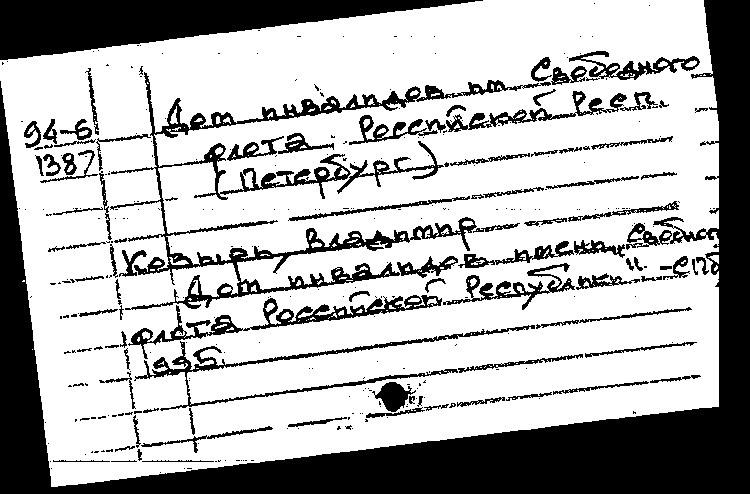 Дом инвалидов им Свободного
94-6
флота Российской Респ.
1387
(Петербург)
Козырь, Владимир
Дом инвалидов имени "Свободного
флота Российской Республики". -СПб
1995.